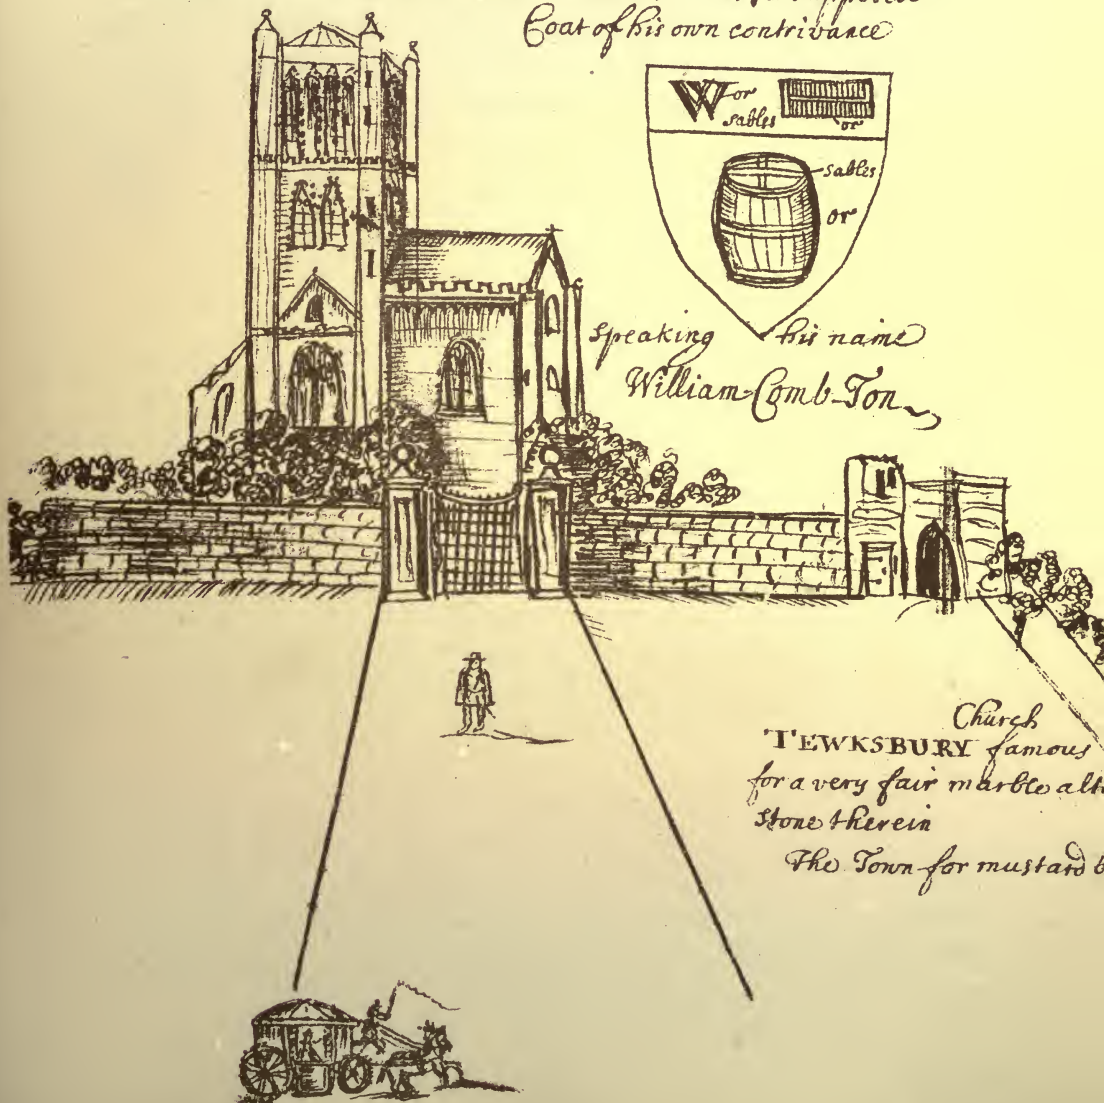 Coat of his own contrivance
W or
sables
or
sables
or
speaking his name
William-Comb-Ton
Church
TEWKSBURY famous
for a very fair marble alt
stone therein
The Town for mustard b